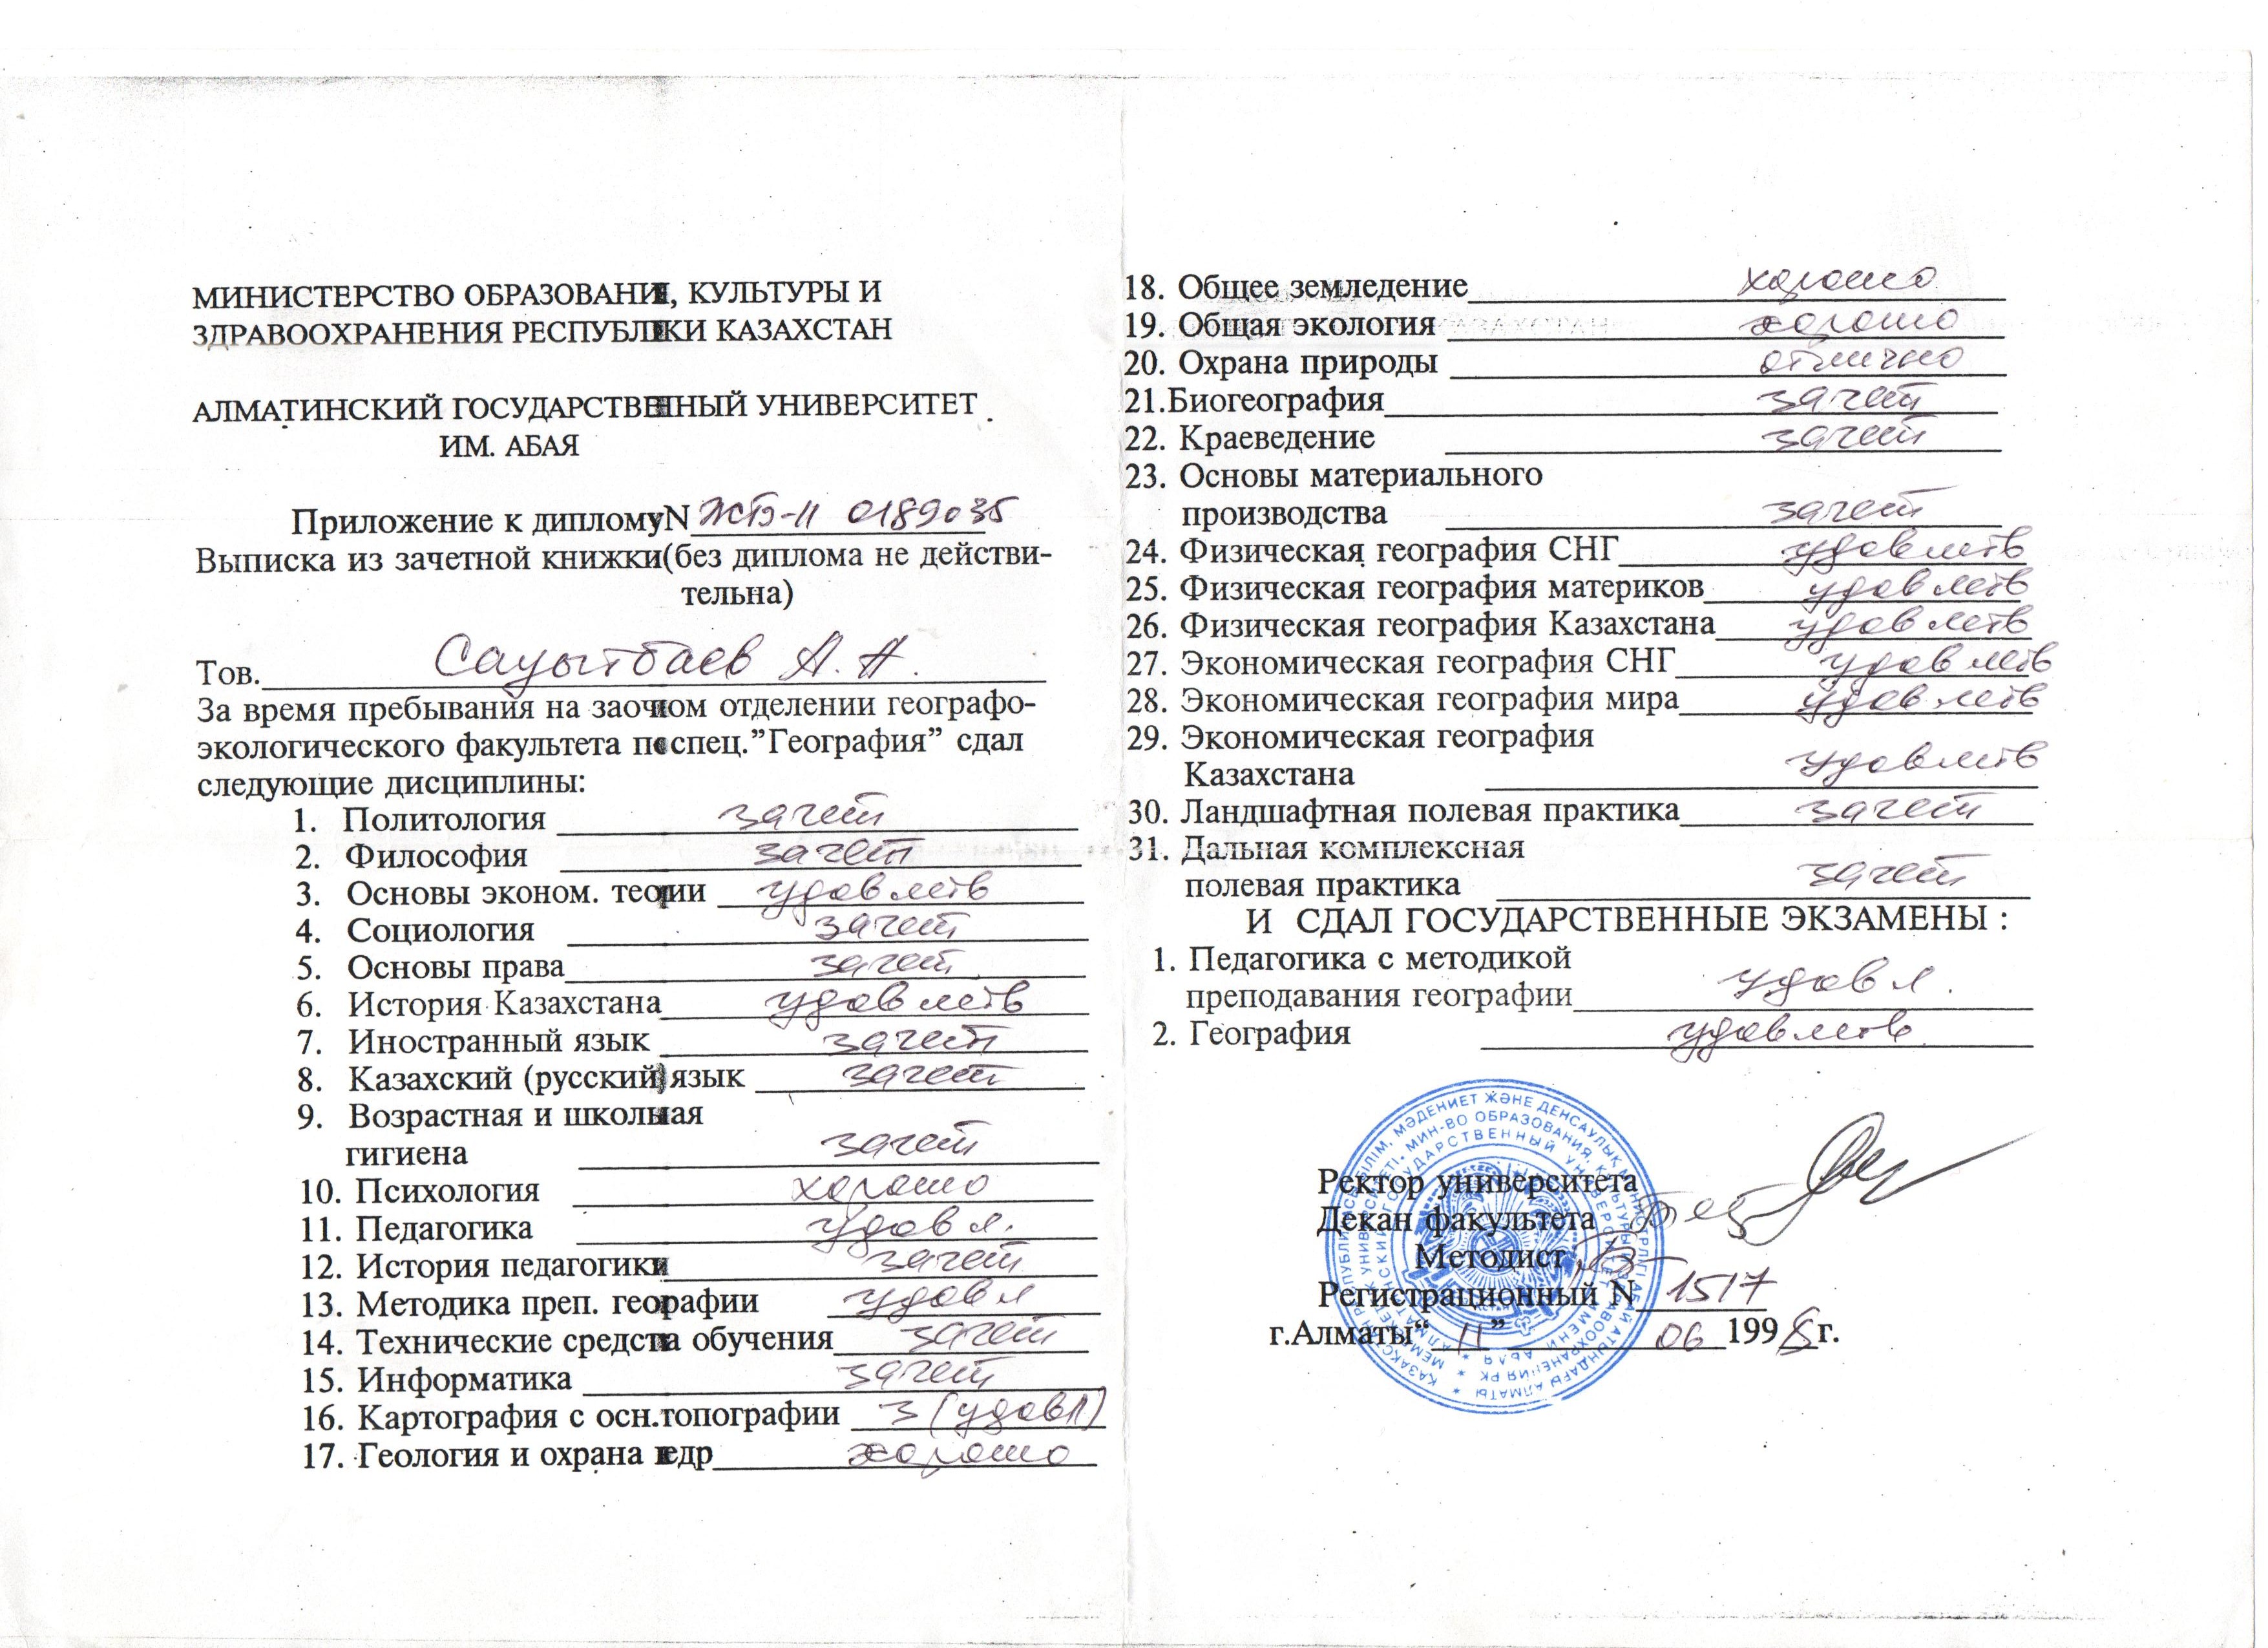 МИНИСТЕРСТВО ОБРАЗОВАНИЯ, КУЛЬТУРЫ И
ЗДРАВООХРАНЕНИЯ РЕСПУБЛИКИ КАЗАХСТАН
АЛМАТИНСКИЙ ГОСУДАРСТВЕННЫЙ УНИВЕРСИТЕТ
ИМ. АБАЯ
Приложение к диплому N ЖБ-II 0189035
Выписка из зачетной книжки(без диплома не действи-
тельна)
Тов. Сауытбаев А.А.
За время пребывания на заочном отделении географо-
экологического факультета по спец."География" сдал
следующие дисциплины:
1. Политология зачет
2. Философия зачет
3. Основы эконом. теории удовлетв
4. Социология зачет
5. Основы права зачет
6. История Казахстана удовлетв
7. Иностранный язык зачет
8. Казахский (русский) язык зачет
9. Возрастная и школьная
гигиена зачет
10. Психология хорошо
11. Педагогика удовл.
12. История педагогики зачет
13. Методика преп. географии удовл
14. Технические средства обучения зачет
15. Информатика зачет
16. Картография с осн.топографии 3 (удовл)
17. Геология и охрана недр хорошо
18. Общее земледение хорошо
19. Общая экология хорошо
20. Охрана природы отлично
21.Биогеография зачет
22. Краеведение зачет
23. Основы материального
производства зачет
24. Физическая география СНГ удовлетв
25. Физическая география материков удовлетв
26. Физическая география Казахстана удовлетв
27. Экономическая география СНГ удовлетв
28. Экономическая география мира удовлетв
29. Экономическая география
Казахстана удовлетв
30. Ландшафтная полевая практика зачет
31. Дальная комплексная
полевая практика зачет
И СДАЛ ГОСУДАРСТВЕННЫЕ ЭКЗАМЕНЫ :
1. Педагогика с методикой
преподавания географии удовл.
2. География удовлетв
Ректор университета
Декан факультета
Методист
Регистрационный N 1517
г.Алматы“ 11 ” 06 1998 г.